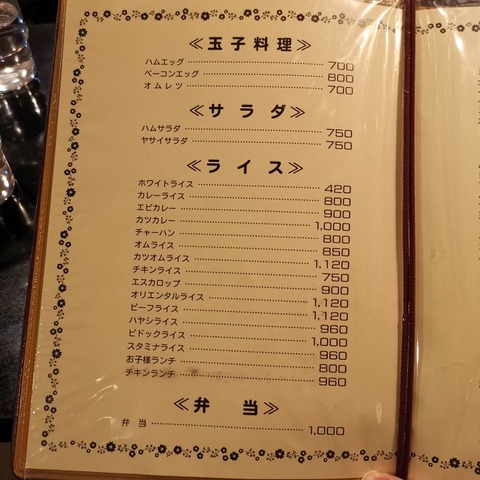 ≪玉子料理≫
ハムエッグ 700
ベーコンエッグ 800
オムレツ 700
≪サラダ≫
ハムサラダ 750
ヤサイサラダ 750
≪ライス≫
ホワイトライス 420
カレーライス 800
エビカレー 900
カツカレー 1,000
チャーハン 800
オムライス 850
カツオムライス 1,120
チキンライス 750
エスカロップ 900
オリエンタルライス 1,120
ビーフライス 1,120
ハヤシライス 960
ビドックライス 1,000
スタミナライス 960
お子様ランチ 800
チキンランチ 960
≪弁当≫
弁当 1,000